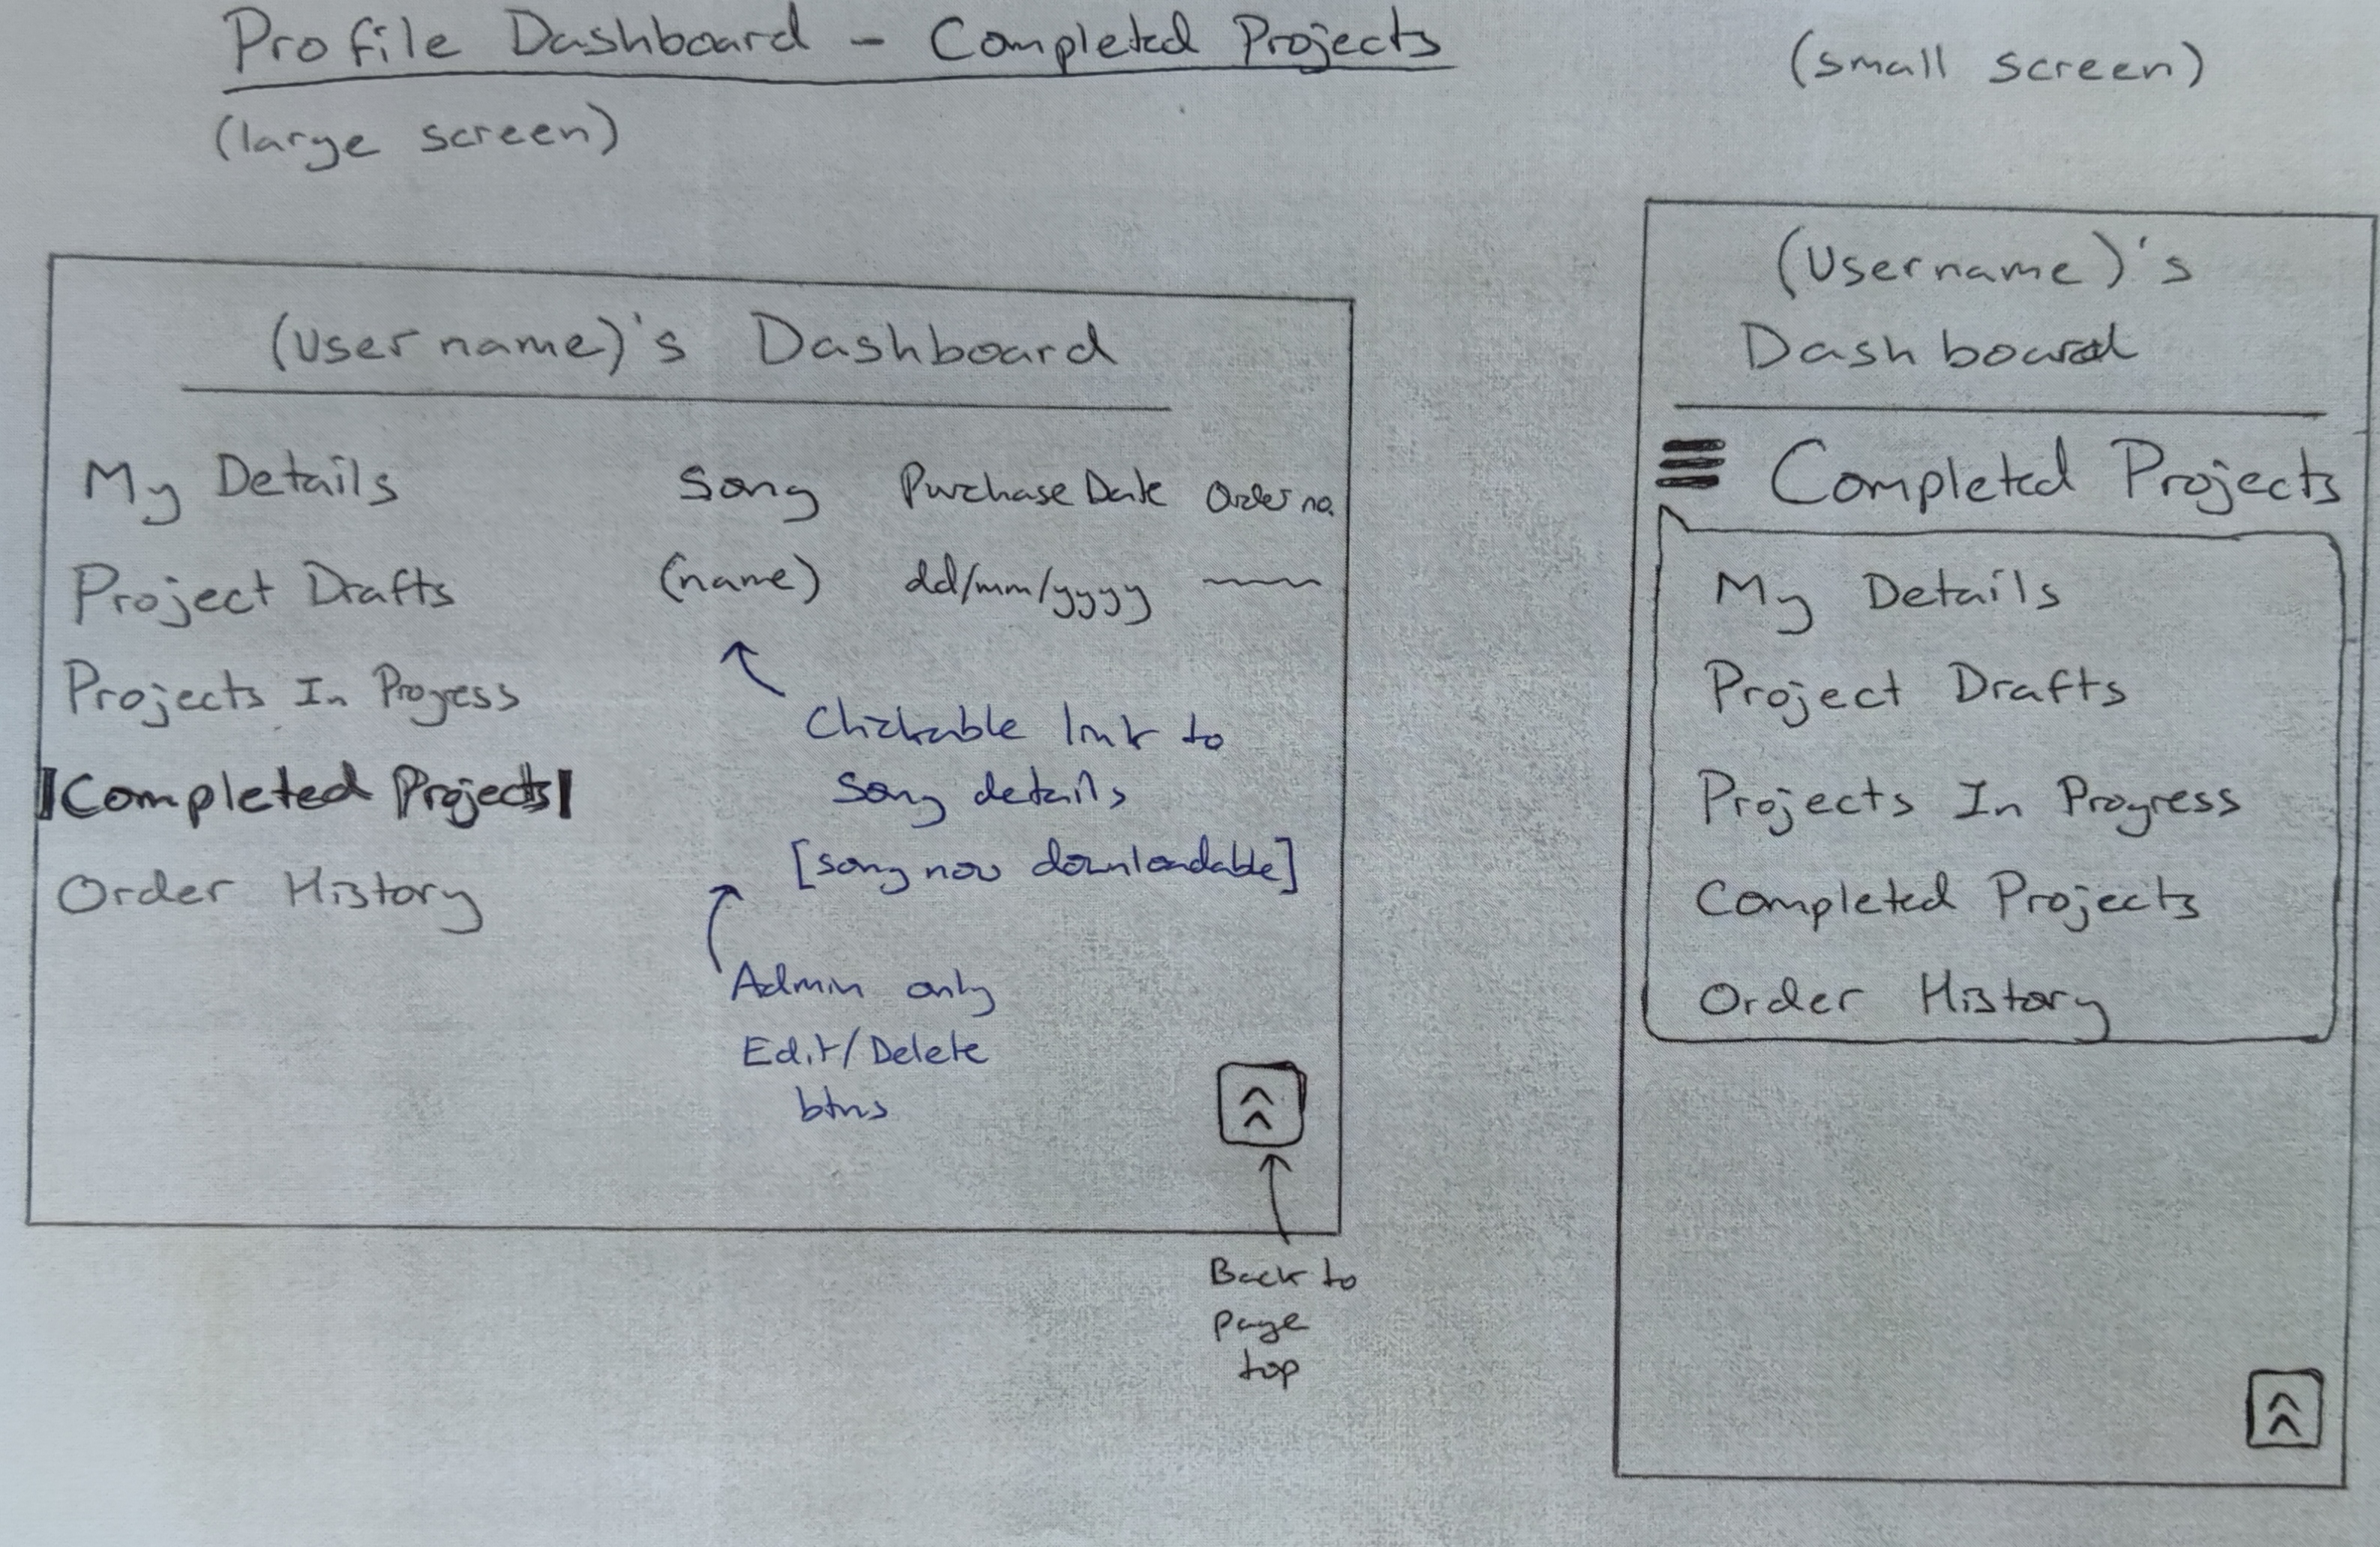 Profile Dashboard - Completed Projects
(large screen)
(Username)'s Dashboard
My Details
Project Drafts
Projects In Progress
Completed Projects
Order History
Song Purchase Date Order no.
(name) dd/mm/yyyy
Clickable link to
song details
[song now downloadable]
Admin only
Edit/Delete
btns
Back to
page
top
(small screen)
(Username)'s
Dashboard
Completed Projects
My Details
Project Drafts
Projects In Progress
Completed Projects
Order History